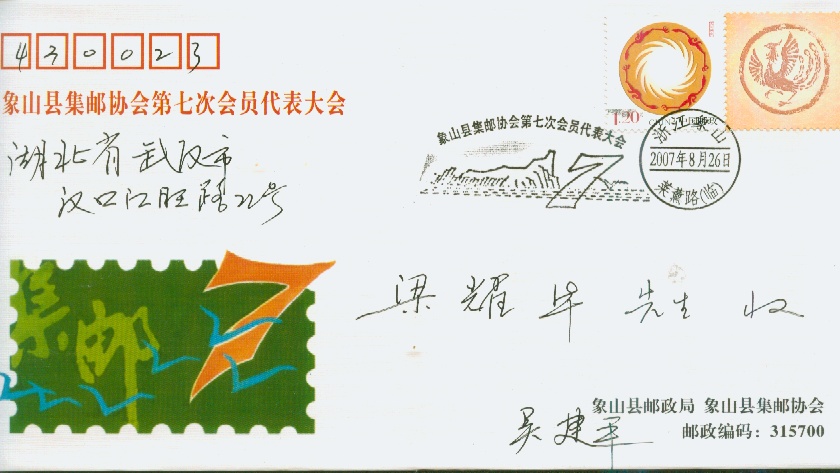 430023
象山县集邮协会第七次会员代表大会
湖北省武汉市
汉口江旺路22号
1.20元
象山县集邮协会第七次会员代表大会
7
浙江象山
2007年8月26日
(临)
集邮
7
梁耀华 先生 收
象山县邮政局 象山县集邮协会
吴建平
邮政编码：315700